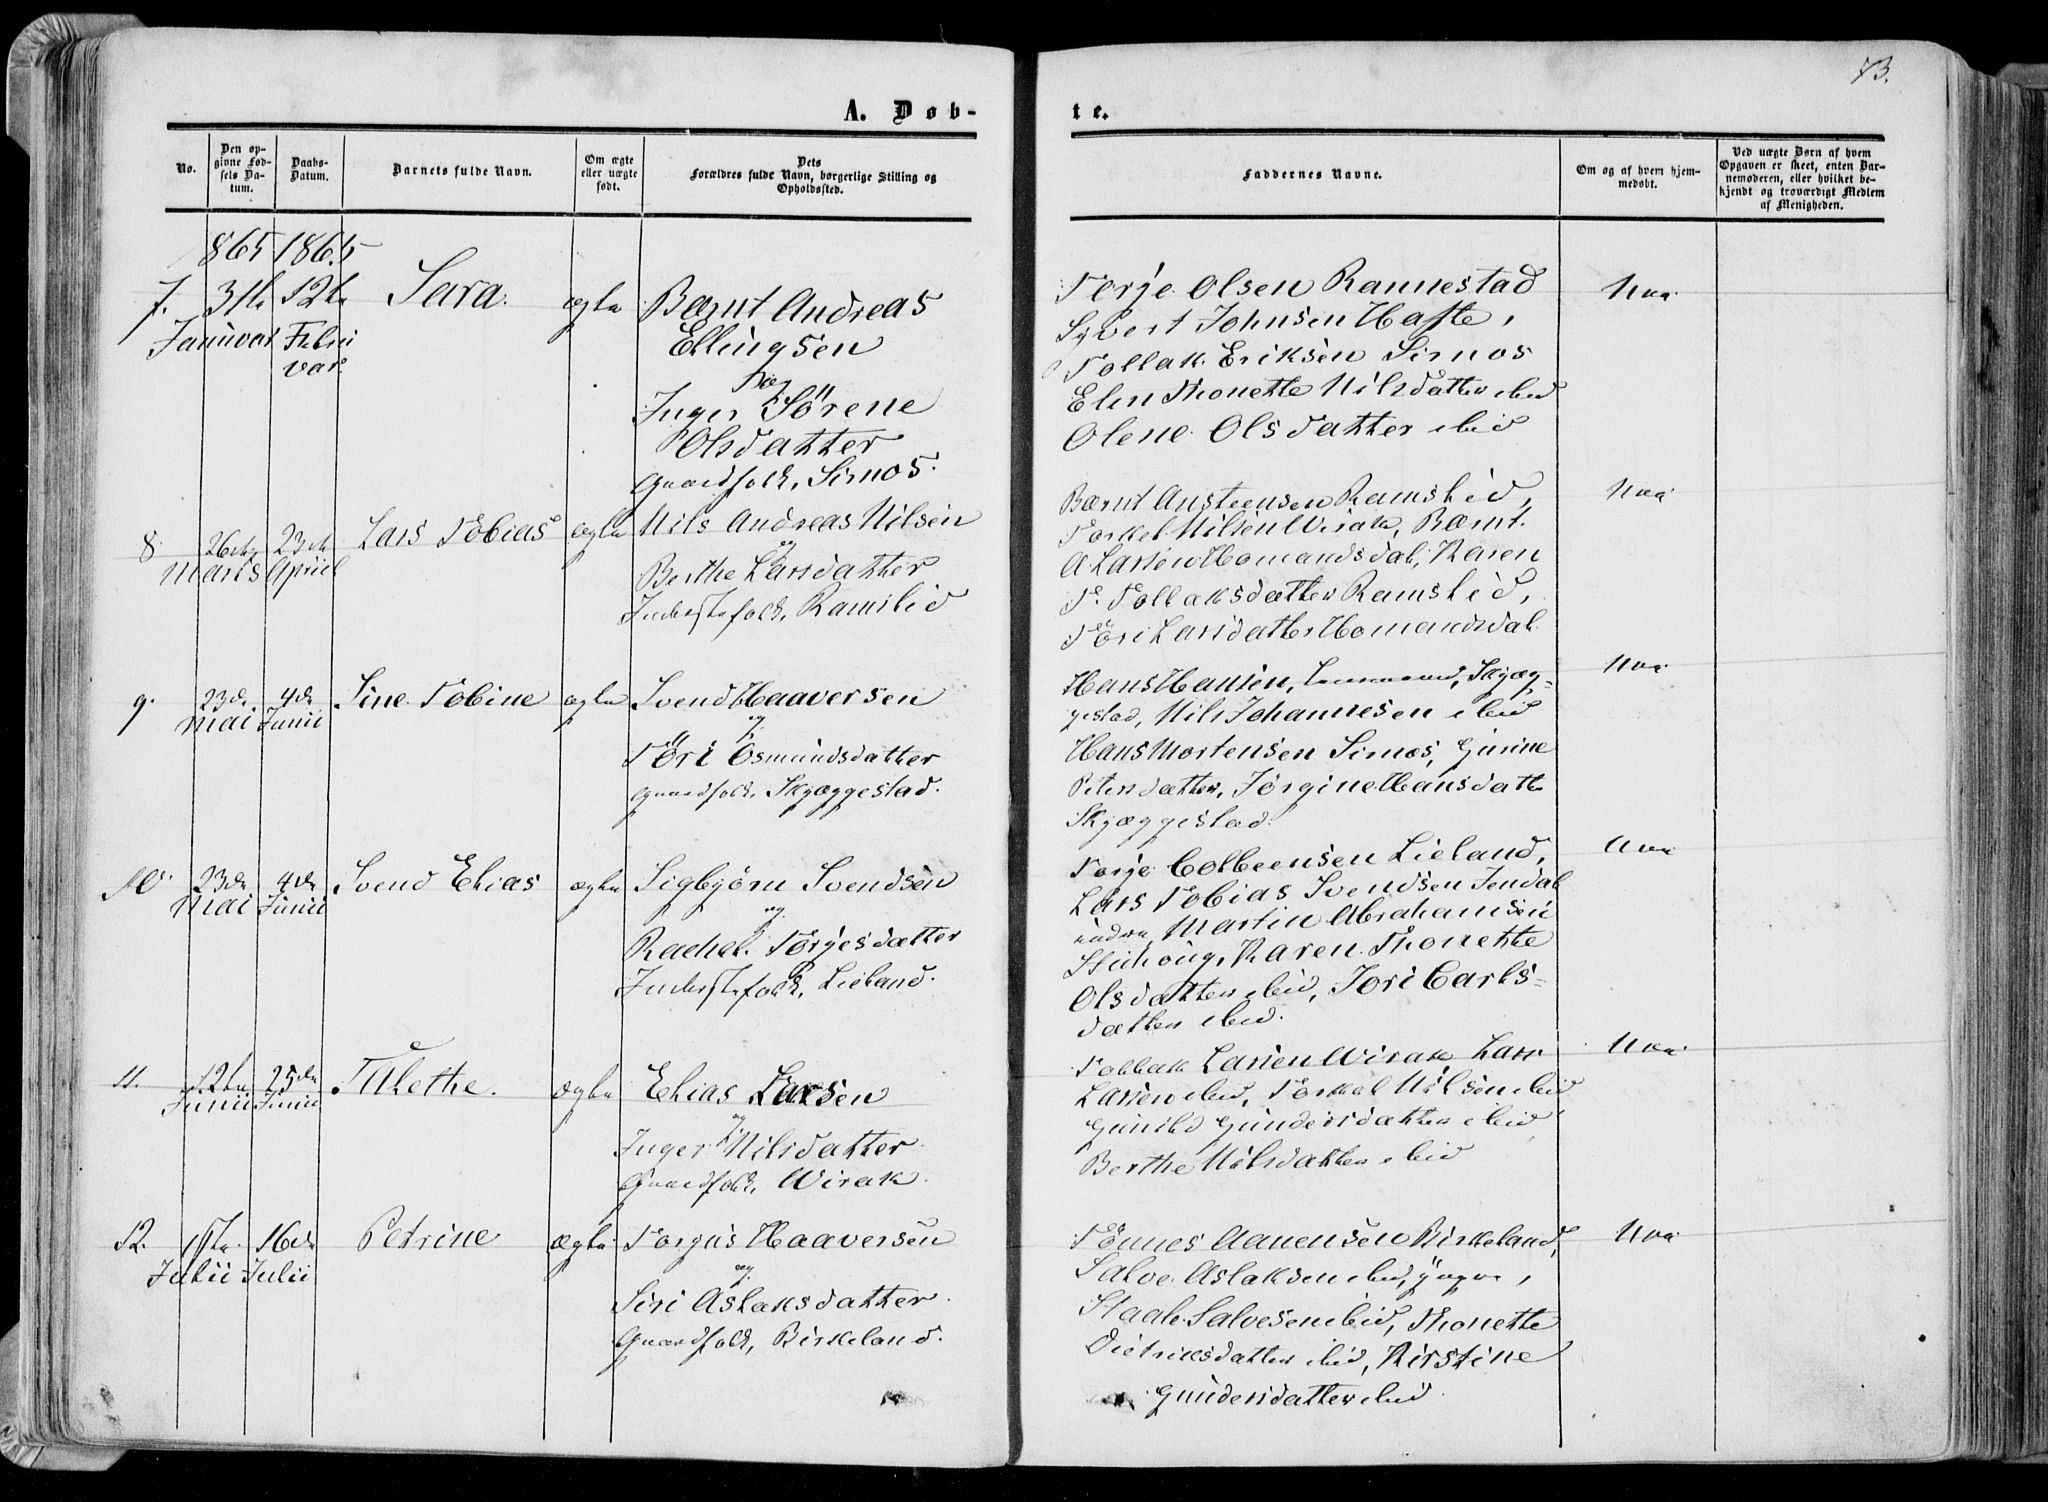 73.
A. Døb-
te.
No.
Den op-
givne Fød-
sels Da-
tum.
Daabs-
Datum.
Barnets fulde Navn.
Om ægte
eller uægte
født.
Dets
Forældres fulde Navn, borgerlige Stilling og
Opholdssted.
Faddernes Navne.
Om og af hvem hjem-
medøbt.
Ved uægte Børn af hvem
Opgaven er skeet, enten Bar-
nemoderen, eller hvilket be-
kjendt og troværdigt Medlem
af Menigheden.
1865 1865
7. 31te 12te Sara. ægte
Januvar Febru
var
Bernt Andreas
Ellingsen
og
Inger Sörene
Olsdatter
Gaardfolk, Sirnos.
Torje Olsen Rannestad
Syvert Johnsen
Tollak Eriksen Sirnos
Elen Thonette Nilsdatter ibid
Olene Olsdatter ibid
8. 26de 23de Lars Tobias ægte
Marts April
Nils Andreas Nilsen
og
Berthe Larsdatter
Inderstefolk, Ramslid
Bernt Ansteensen Ramslid,
Torkel Nilsen Wirak, Bernt
A. Larsen Homandsdal, Karen
T. Tollaksdatter Ramslid,
Töri Larsdatter Homandsdal
9. 23de 4de Sine Tobine ægte
Mai Junii
Svend Haaversen
og
Töri Osmundsdatter
Gaardfolk, Skjæggestad.
Hans Hansen, Skjæg-
gestad, Nils Johannesen ibid
Hans Mortensen Sirnos, Gurine
Petersdatter, Jørgine Hansdatter
Skjæggestad.
10. 23de 4de Svend Elias ægte
Mai Junii
Sigbjørn Svendsen
og
Rachel Torjesdatter
Inderstefolk, Lieland.
Torje Colbeensen Lieland,
Lars Tobias Svendsen Jendal
indre, Martin Abrahamsen
Karen Thonette
Olsdatter ibid, Jori Carls-
datter ibid.
11. 12te 25de Talethe. ægte
Junii Junii
Elias Larsen
og
Inger Nilsdatter
Gaardfolk, Wirak.
Tollak Larsen Wirak Lars
Larsen ibid, Torkel Nilsen ibid
Gunild Gundersdatter ibid
Berthe Nilsdatter ibid
12. 1ste 16de Petrine ægte
Julii Julii
Torgus Haaversen
og
Siri Aslaksdatter
Gaardfolk, Birkeland.
Tönnes Aanensen Birkeland,
Salve Aslaksen ibid,
Staale Salvesen ibid, Thonette
Dietriksdatter ibid, Kirstine
Gundersdatter ibid.